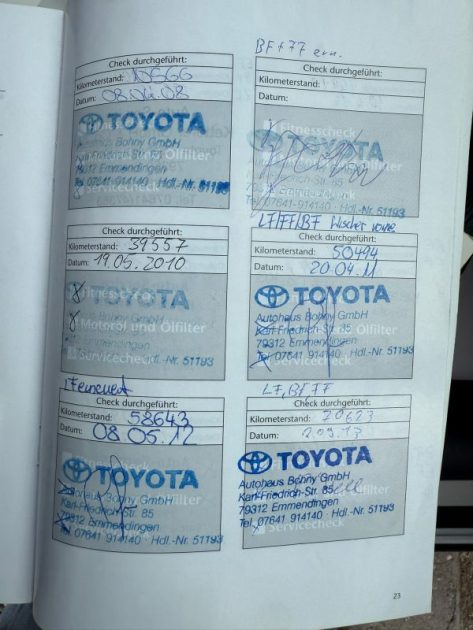 Check durchgeführt:
Kilometerstand: 10566
Datum: 08.04.08
TOYOTA
Autohaus Bohny GmbH
Karl-Friedrich-Str. 85
79312 Emmendingen
Tel. 07641 914140 · Hdl.-Nr. 51193
Ölfilter
BF+77 ern.
Check durchgeführt:
Kilometerstand:
Datum:
Fitnesscheck
Motoröl und Ölfilter
Servicecheck
Karl-Friedrich-Str. 85
79312 Emmendingen
Tel. 07641 914140 · Hdl.-Nr. 51193
Check durchgeführt:
Kilometerstand: 39557
Datum: 19.05.2010
TOYOTA
Fitnesscheck
Motoröl und Ölfilter
Servicecheck
Hdl.-Nr. 51193
LF/FF/BF Wischer vorne
Check durchgeführt:
Kilometerstand: 50494
Datum: 20.04.11
TOYOTA
Autohaus Bohny GmbH
Karl-Friedrich-Str. 85
79312 Emmendingen
Tel. 07641 914140 · Hdl.-Nr. 51193
Check durchgeführt:
Kilometerstand: 58643
Datum: 08.05.12
TOYOTA
Autohaus Bohny GmbH
Karl-Friedrich-Str. 85
79312 Emmendingen
Tel. 07641 914140 · Hdl.-Nr. 51193
LF, BF, FF
Check durchgeführt:
Kilometerstand: 70623
Datum:
TOYOTA
Autohaus Bohny GmbH
Karl-Friedrich-Str. 85
79312 Emmendingen
Tel. 07641 914140 · Hdl.-Nr. 51193
Servicecheck
23